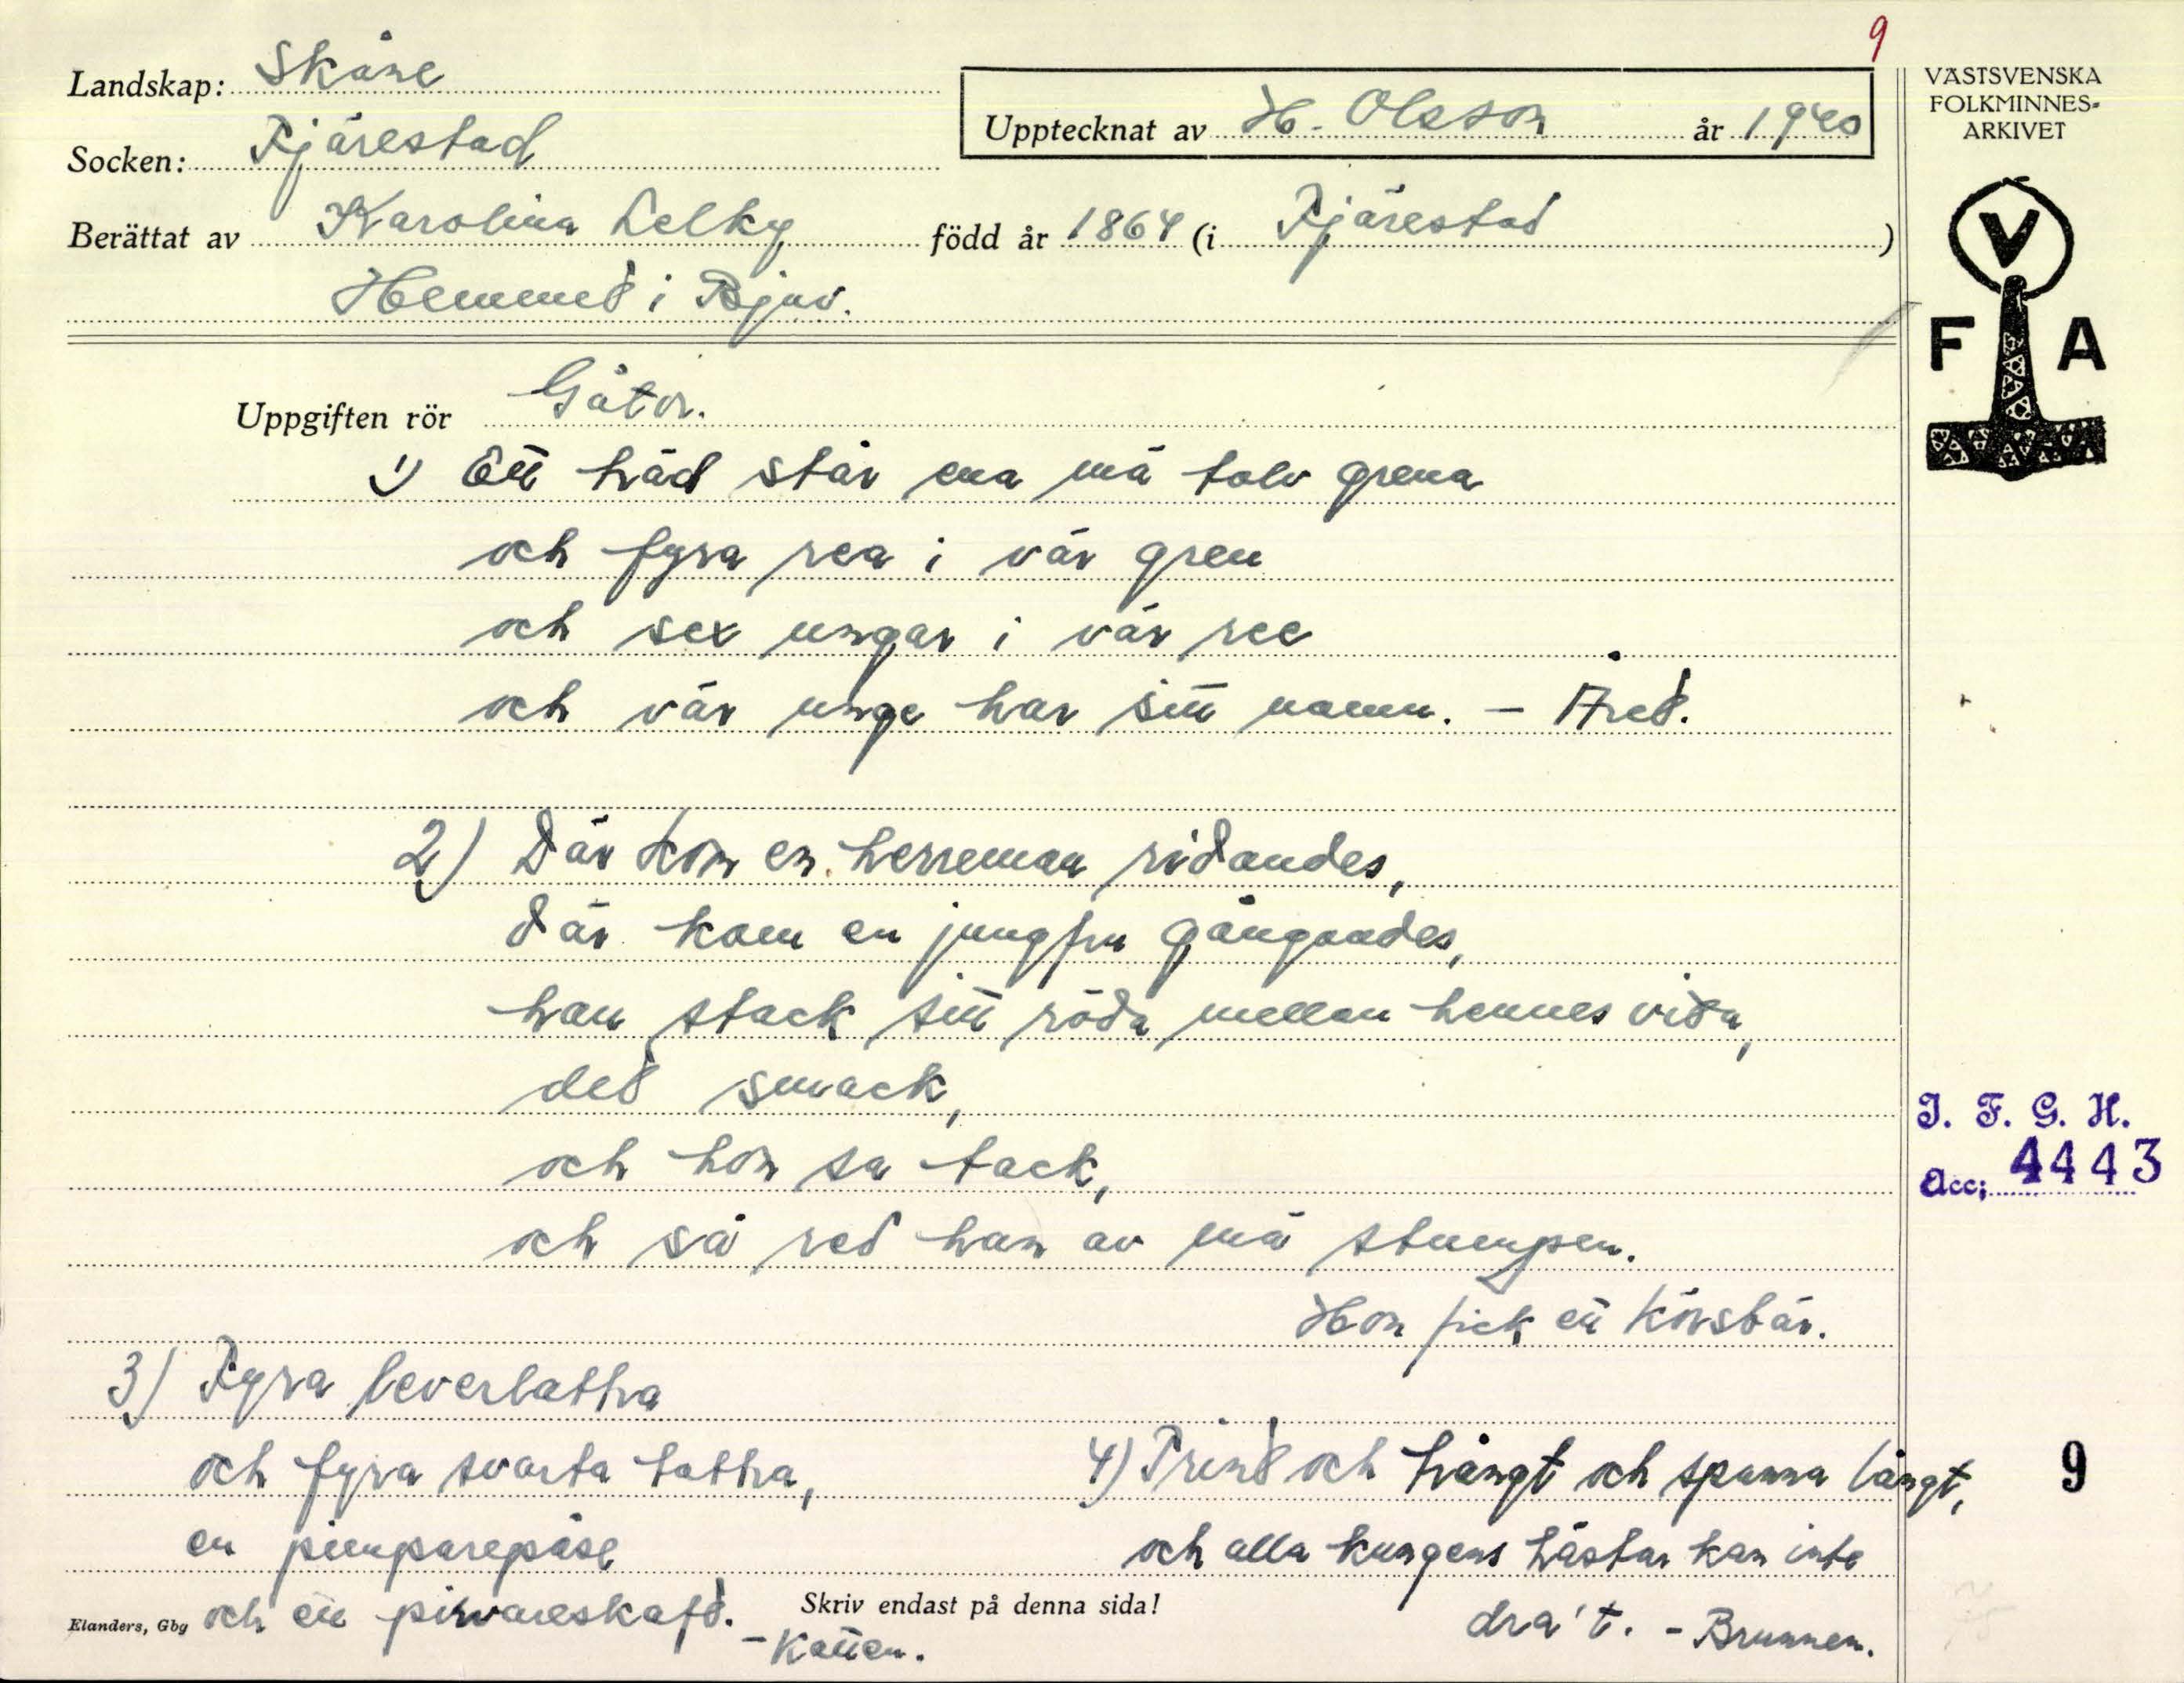 9
Landskap: Skåne
Socken: Fjärestad
Upptecknat av H. Olsson år 1940
Berättat av Karolina Selky född år 1864 (i Fjärestad)
Hemmet i Bjuv.
VÄSTSVENSKA
FOLKMINNES-
ARKIVET
V
F A
Uppgiften rör Gåtor.
1) Ett träd står ena mä tolv grena
och fyra rea i vär gren
och sex ungar i vär ree
och vär unge har sitt namn. - Året.
2) Där kom en herreman ridandes,
där kom en jungfru gångandes,
han stack sitt röda mellan hennes vita,
det smack,
och hon sa tack,
och så red han av mä stumpen.
Hon fick ett körsbär.
3) Fyra leverlattra
och fyra svarta tattra,
en pimparepåse
och ett pirvareskaft. - Katten.
4) Trint och trångt och spanna långt,
och alla kungens hästar kan inte
dra't. - Brunnen.
I. F. G. H.
Acc; 4443
9
Skriv endast på denna sida!
Elanders, Gbg